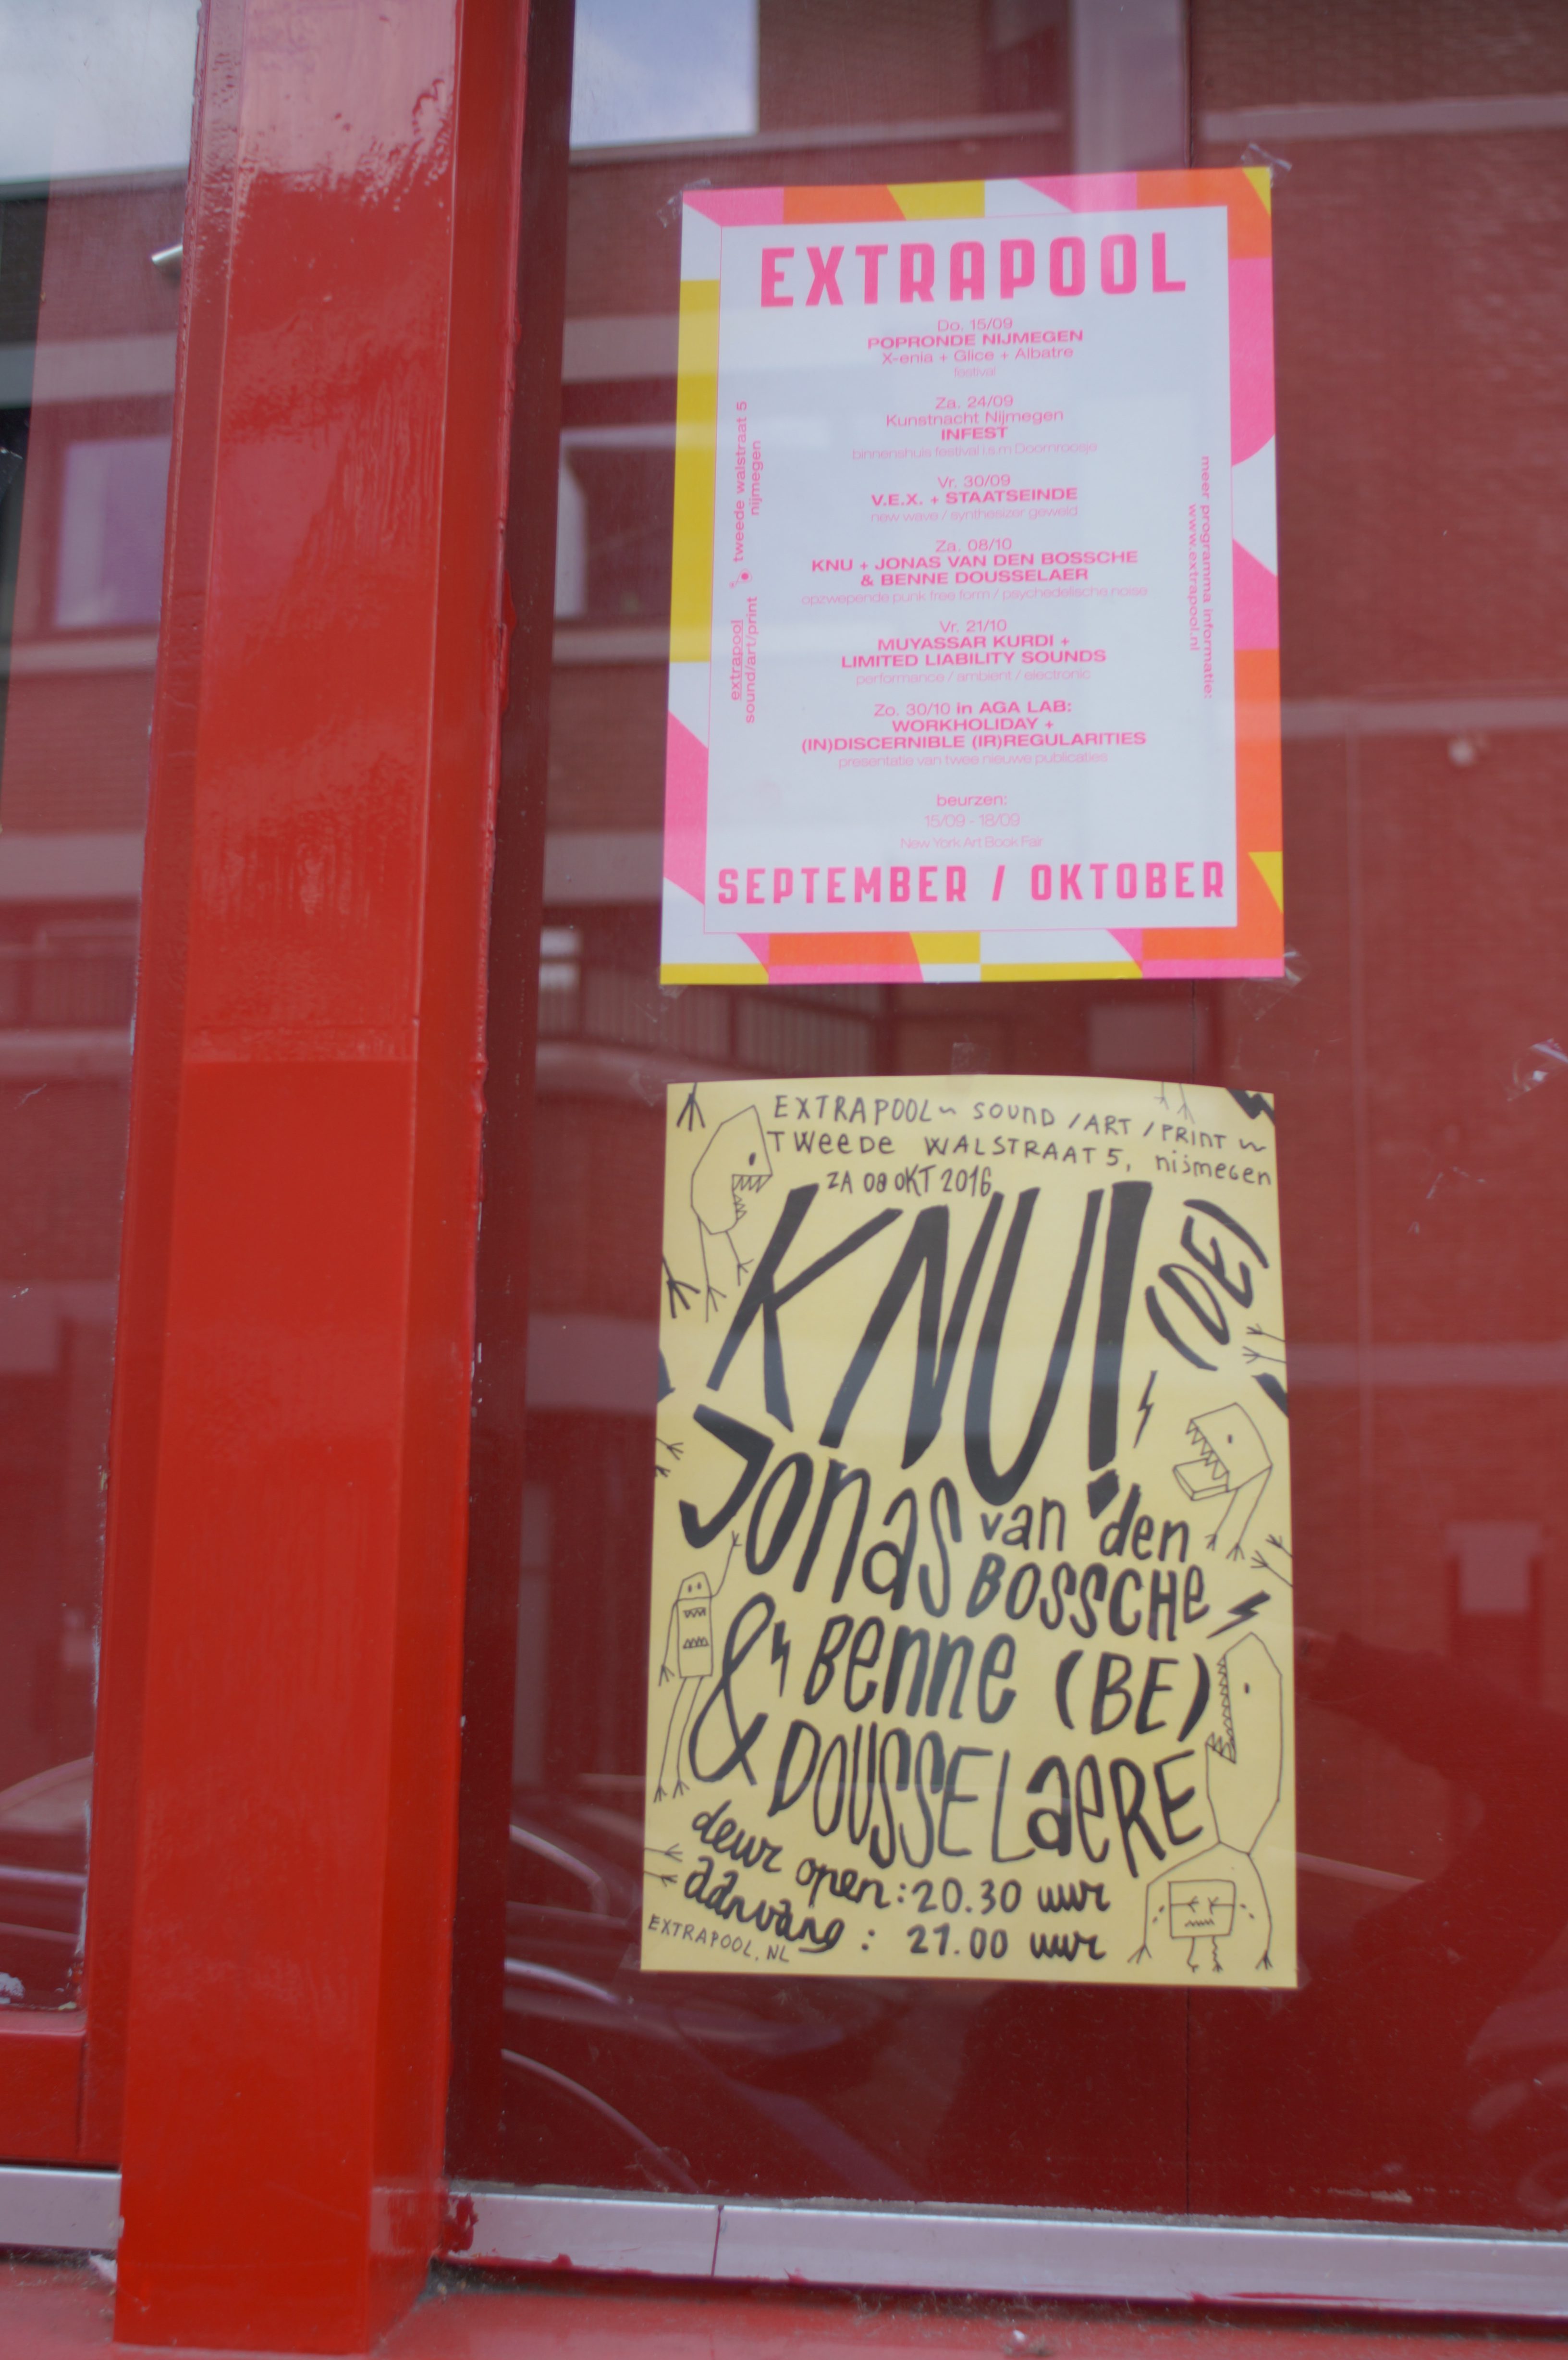 EXTRAPOOL
Do. 15/09
POPRONDE NIJMEGEN
X-enia + Glice + Albatre
festival
Za. 24/09
Kunstnacht Nijmegen
INFEST
binnenshuis festival i.s.m Doornroosje
Vr. 30/09
V.E.X. + STAATSEINDE
new wave / synthesizer geweld
Za. 08/10
KNU + JONAS VAN DEN BOSSCHE
& BENNE DOUSSELAER
opzwepende punk free form / psychedelische noise
Vr. 21/10
MUYASSAR KURDI +
LIMITED LIABILITY SOUNDS
performance / ambient / electronic
Zo. 30/10 in AGA LAB:
WORKHOLIDAY +
(IN)DISCERNIBLE (IR)REGULARITIES
presentatie van twee nieuwe publicaties
beurzen:
15/09 - 18/09
New York Art Book Fair
SEPTEMBER / OKTOBER
extrapool
sound/art/print
tweede walstraat 5
nijmegen
meer programma informatie:
www.extrapool.nl
EXTRAPOOL~ SOUND /ART /PRINT ~
TWEEDE WALSTRAAT 5, nijmegen
ZA 08 OKT 2016
KNU! (DE)
Jonas van den
BOSSCHe
& Benne (BE)
DOUSSELaeRE
deur open: 20.30 uur
aanvang: 21.00 uur
EXTRAPOOL.NL